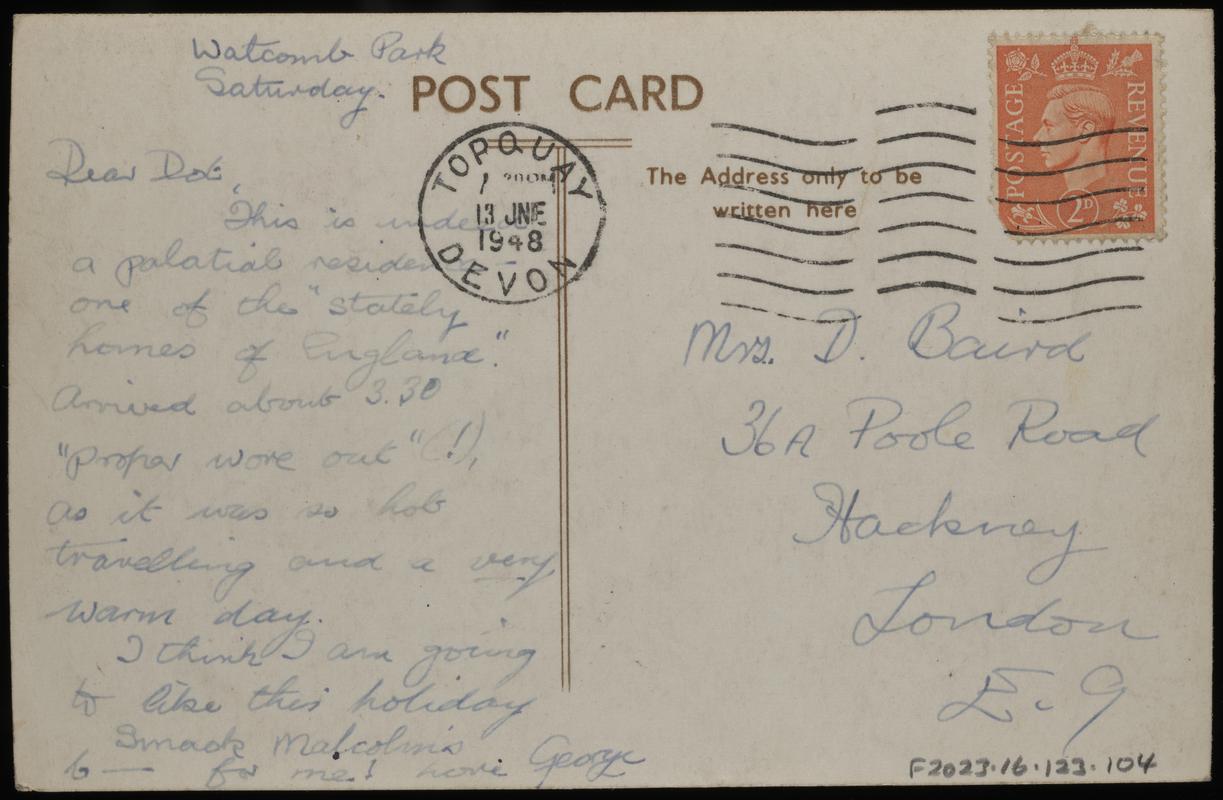 Watcomb Park
Saturday.
POST CARD
Dear Dot
This is indeed
a palatial residence -
one of the "stately
homes of England".
Arrived about 3.30
"proper wore out" (!),
as it was so hot
travelling and a very
warm day.
I think I am going
to like this holiday
Smack Malcolm's
b— for me! love George
TORQUAY
13 JNE
1948
DEVON
The Address only to be
written here
POSTAGE
REVENUE
2D
Mrs. D. Baird
36A Poole Road
Hackney
London
E. 9
F2023.16.123.104